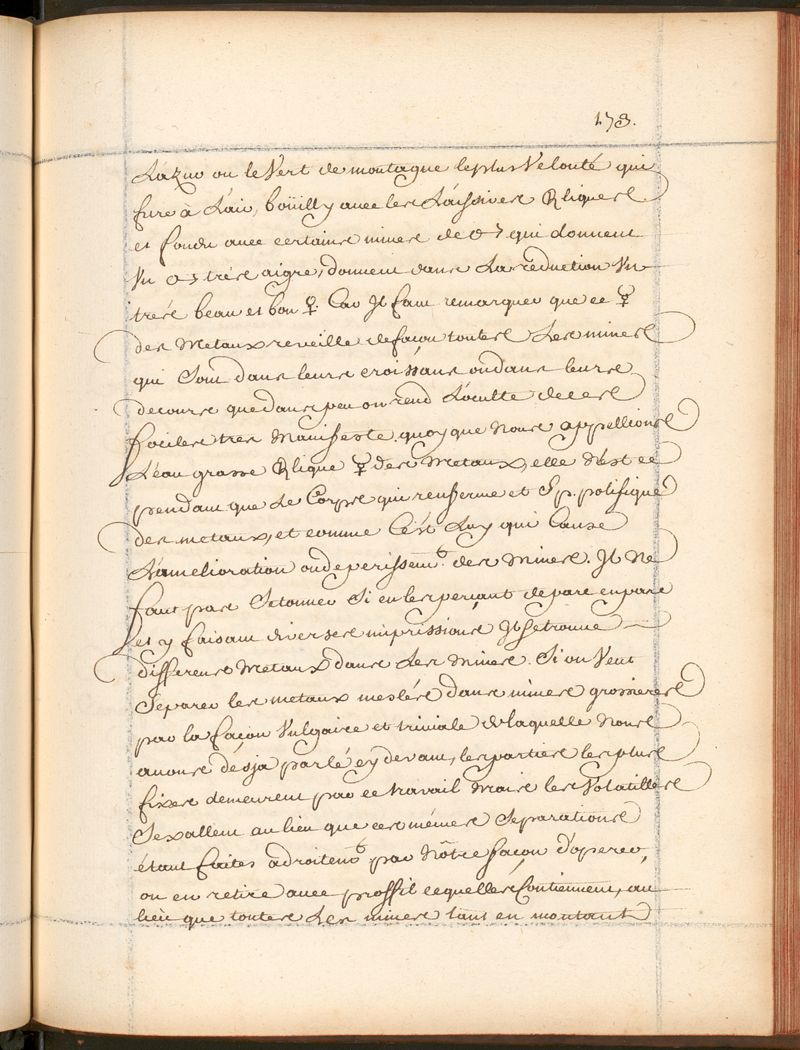 173.
L'azur ou le Vert de montagne le plus Velouté qui
fure à L'air, boüilly avec les Láissives Rliques
et fondu avec certaines mines de ♂ qui donnent
Vn ♂ trés aigre, donnent dans La réduction Vn
trés beau et bon ☿. Car Jl faut remarquer que ce ☿
des Metaux reveille de façon toutes Les mines
qui Sont dans leurs croissans ou dans leurs
decours que dans peu on rend L'oculte de ces
fociles tres Manifeste, quoy que Nous appellions
L'eau grasse Rlique ☿ des Metaux, elle N'est ce
pendant que Le Corps qui renferme et Sp. polifique
des metaux, et comme C'ést Luy qui Cause
L'amelioration ou deperissemt. des Mines. Jl Ne
faut pas S'etonner Si en les perçant de part en part
et y faisant diverses impressions Jl se trouve
differens Metaux dans Les Mines. Si on Veut
Separer les metaux meslés dans mines grossieres
par la façon Vulgaire et triviale de laquelle Nous
avons désja parlé cy devant, les parties les plus
fixes demeurent par ce travail Mais les Volatilles
S'exallent au lieu que ces mémes Separations
étant faites adroitemt. par Nôtre façon d'operer,
on en retire avec proffit ce qu'elles Contiennent, au
lieu que toutes Les mines tant en montant